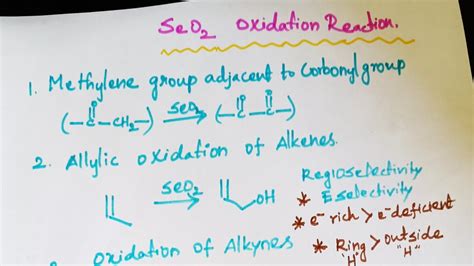 SeO2 Oxidation Reaction.
1. Methylene group adjacent to Carbonyl group
(-C-CH2-) SeO2 (-C-C-)
O O O
2. Allylic oxidation of Alkenes.
SeO2 OH
Regioselectivity
* E selectivity
* e- rich > e- deficient
* Ring > outside
"H" "H"
oxidation of Alkynes